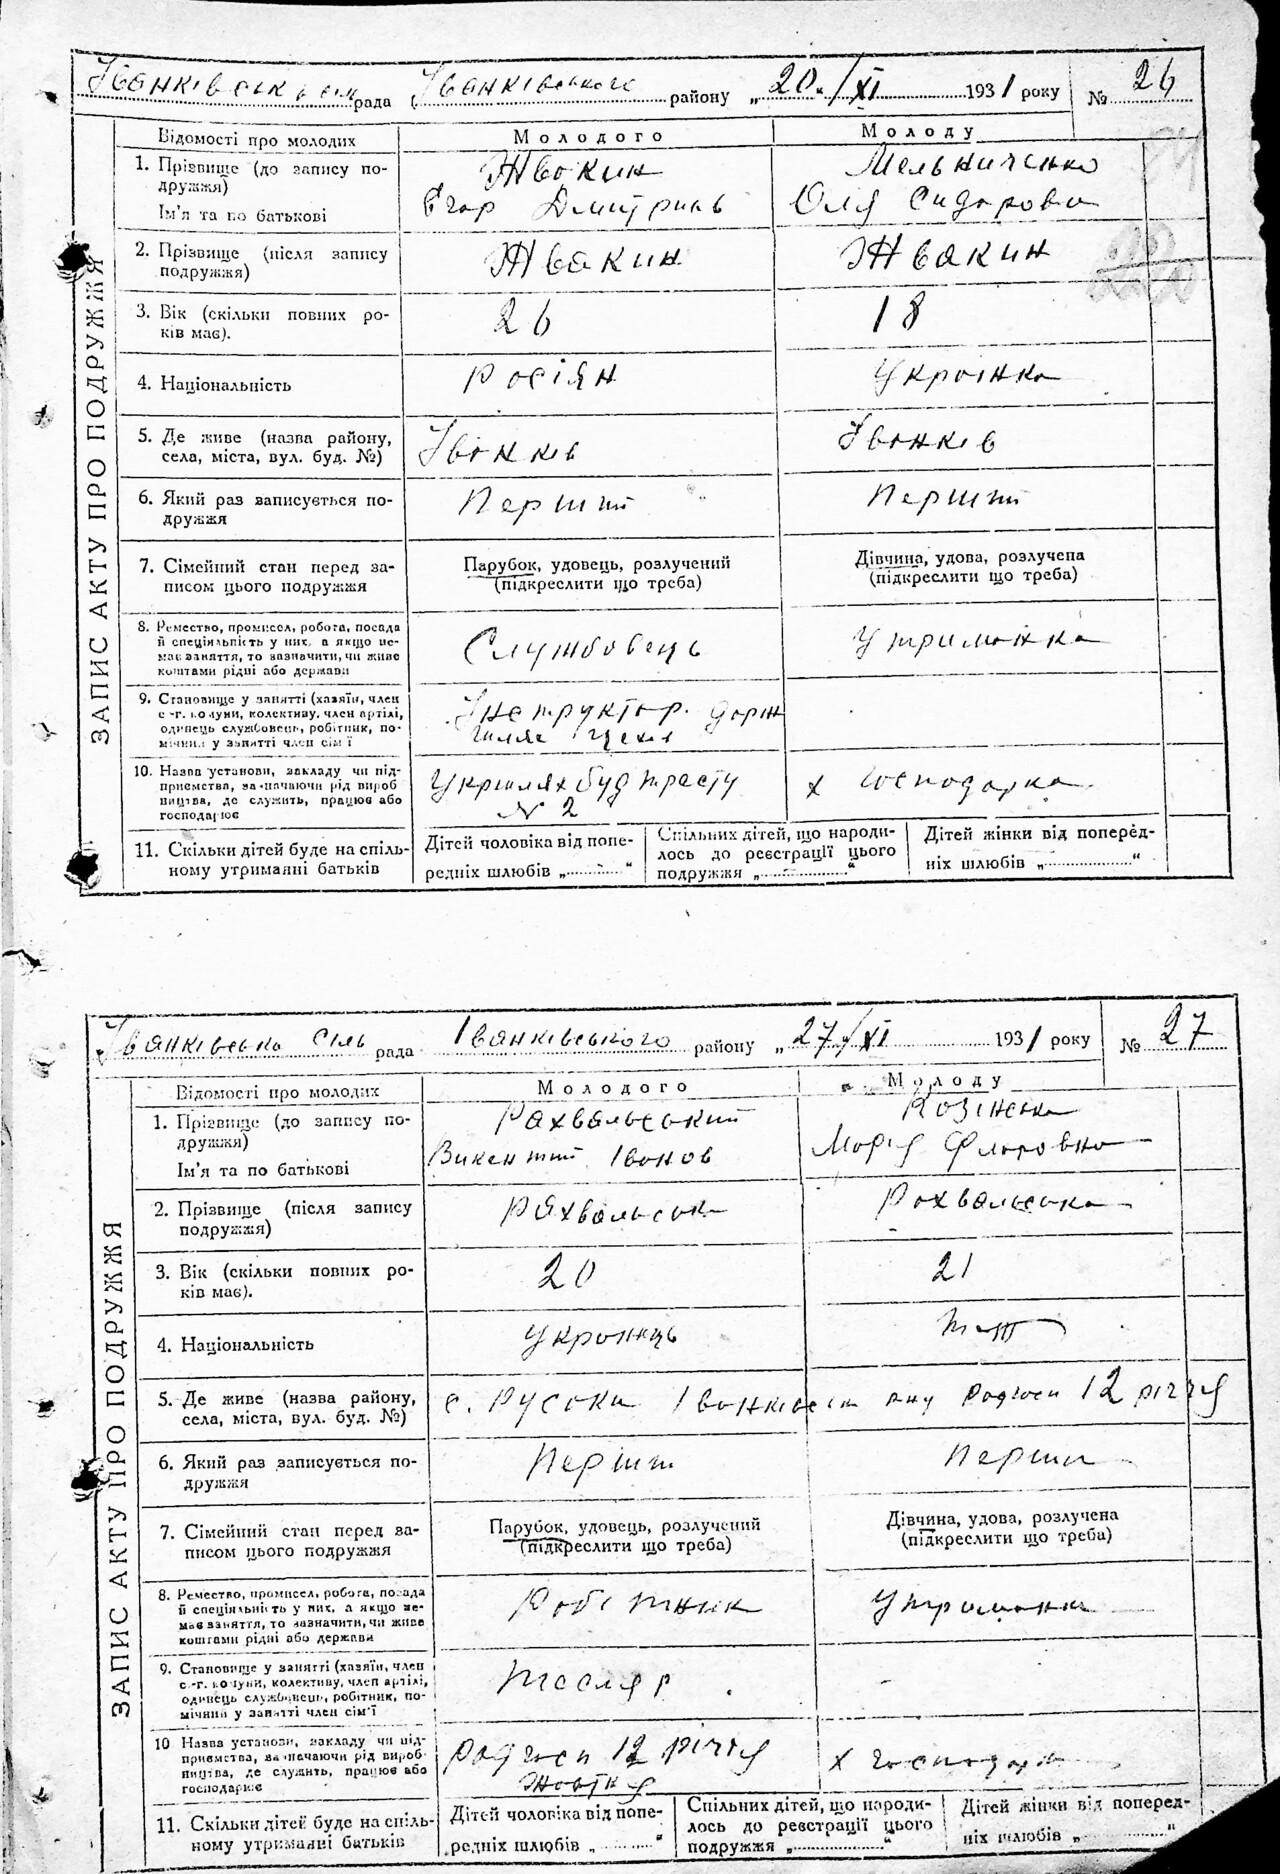 Іванківськ сіл рада Іванківського району „20/XI 1931 року № 26
ЗАПИС АКТУ ПРО ПОДРУЖЖЯ
Відомості про молодих Молодого Молоду
1. Прізвище (до запису по- Жвакин Мельниченко
дружжя)
Ім'я та по батькові Єгор Дмитрис Оля Сидорова
2. Прізвище (після запису Жвакин Жвакин
подружжя)
3. Вік (скільки повних ро- 26 18
ків має).
4. Національність Росіян Українка
5. Де живе (назва району, Іванків Іванків
села, міста, вул. буд. №)
6. Який раз записується по- Перший Перший
дружжя
7. Сімейний стан перед за- Парубок, удовець, розлучений Дівчина, удова, розлучена
писом цього подружжя (підкреслити що треба) (підкреслити що треба)
8. Ремество, промисел, робота, посада
й спеціяльність у них, а якщо не- Службовець Утриманка
має заняття, то зазначити, чи живе
коштами рідні або держави
9. Становище у занятті (хазяїн, член
с.-г. комуни, колективу, член артілі, Інструктор дорж
одинець службовець, робітник, по-
мічник у занятті член сім'ї
10. Назва установи, закладу чи під- Укршляхбудтресту х господарка
приємства, зазначаючи рід вироб- № 2
ництва, де служить, працює або
господарює
11. Скільки дітей буде на спіль- Дітей чоловіка від попе- Спільних дітей, що народи- Дітей жінки від поперед-
ному утриманні батьків редніх шлюбів „ “ лось до реєстрації цього ніх шлюбів „ “
подружжя „ “
Іванківська сіль рада Іванківського району „27/XI 1931 року № 27
ЗАПИС АКТУ ПРО ПОДРУЖЖЯ
Відомості про молодих Молодого Молоду
1. Прізвище (до запису по- Рахвальський Козінська
дружжя)
Ім'я та по батькові Викентий Іванов Марія Флоровна
2. Прізвище (після запису Рахвальська Рохвальська
подружжя)
3. Вік (скільки повних ро- 20 21
ків має).
4. Національність Українець
5. Де живе (назва району, с. Русаки Іванківськ рну Радгосп 12 річчя
села, міста, вул. буд. №)
6. Який раз записується по- Перший Перший
дружжя
7. Сімейний стан перед за- Парубок, удовець, розлучений Дівчина, удова, розлучена
писом цього подружжя (підкреслити що треба) (підкреслити що треба)
8. Ремество, промисел, робота, посада
й спеціяльність у них, а якщо не- Робітник Утриманка
має заняття, то зазначити, чи живе
коштами рідні або держави
9. Становище у занятті (хазяїн, член
с.-г. комуни, колективу, член артілі, Тесляр
одинець службовець, робітник, по-
мічний у занятті член сім'ї
10 Назва установи, закладу чи під- Радгосп 12 річчя х господарк
приємства, зазначаючи рід вироб- Жовтня
ництва, де служить, працює або
господарює
11. Скільки дітей буде на спіль- Дітей чоловіка від попе- Спільних дітей, що народи- Дітей жінки від поперед-
ному утриманні батьків редніх шлюбів „ “ лось до реєстрації цього ніх шлюбів „ “
подружжя „ “